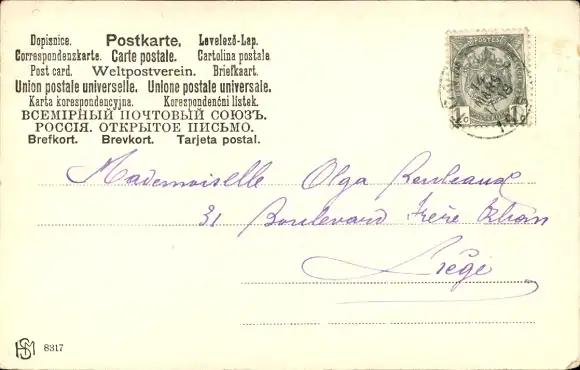 Dopisnice. Postkarte. Levelező-Lap.
Correspondenzkarte. Carte postale. Cartolina postale
Post card. Weltpostverein. Briefkaart.
Union postale universelle. Unione postale universale.
Karta korespondencyjna. Korespondenční lístek.
ВСЕМІРНЫЙ ПОЧТОВЫЙ СОЮЗЪ.
РОССІЯ. ОТКРЫТОЕ ПИСЬМО.
Brefkort. Brevkort. Tarjeta postal.
POSTES
1 1
Mademoiselle Olga
31 Boulevard Frère Orban
Liège
HSM 8317